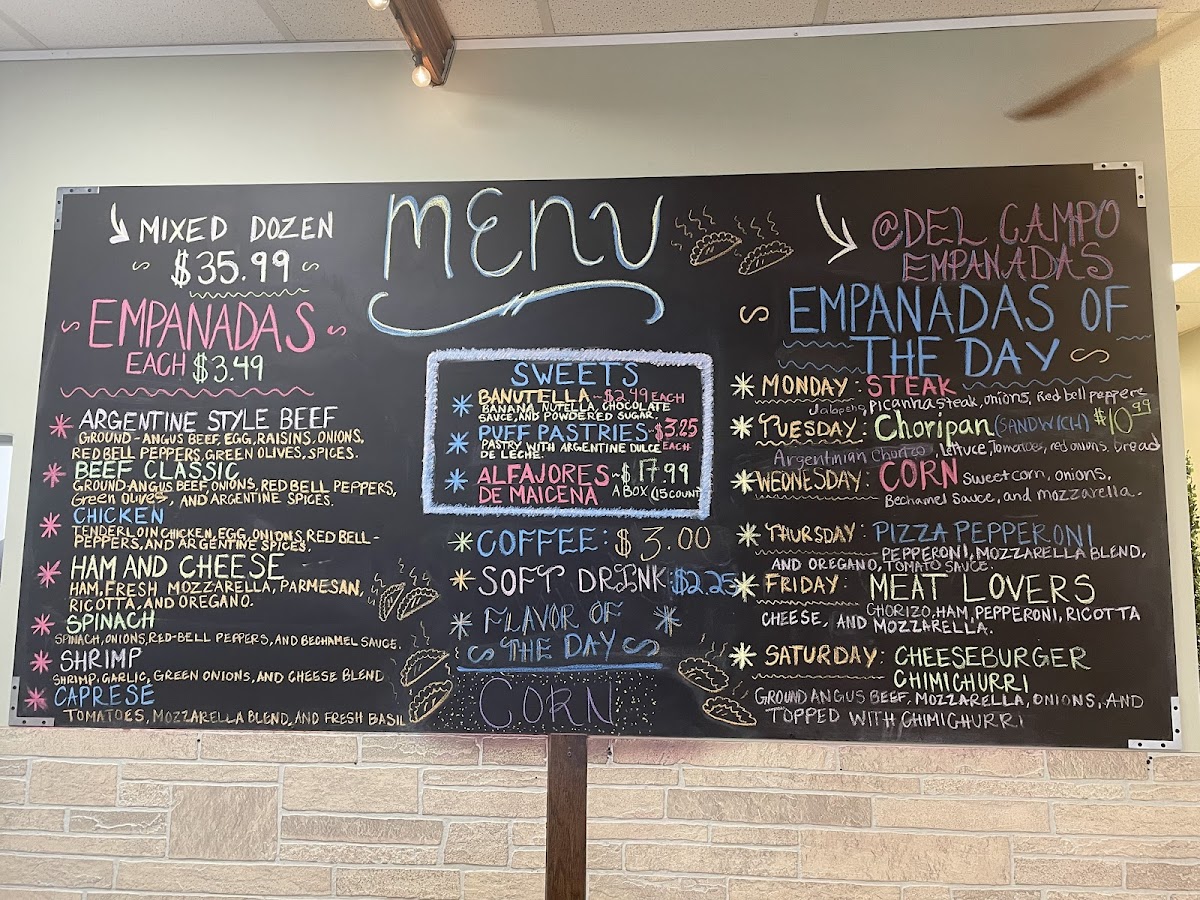 MIXED DOZEN
$35.99
EMPANADAS
EACH $3.49
ARGENTINE STYLE BEEF
GROUND-ANGUS BEEF, EGG, RAISINS, ONIONS,
RED BELL PEPPERS, GREEN OLIVES, SPICES.
BEEF CLASSIC
GROUND-ANGUS BEEF, ONIONS, RED BELL PEPPERS,
Green Olives, AND ARGENTINE SPICES.
CHICKEN
TENDERLOIN CHICKEN, EGG, ONIONS, RED BELL-
PEPPERS, AND ARGENTINE SPICES.
HAM AND CHEESE
HAM, FRESH MOZZARELLA, PARMESAN,
RICOTTA, AND OREGANO.
SPINACH
SPINACH, ONIONS, RED-BELL PEPPERS, AND BECHAMEL SAUCE.
SHRIMP
SHRIMP, GARLIC, GREEN ONIONS, AND CHEESE BLEND
CAPRESE
TOMATOES, MOZZARELLA BLEND, AND FRESH BASIL
MENU
SWEETS
BANUTELLA~$2.49 EACH
BANANA, NUTELLA, CHOCOLATE
SAUCE, AND POWDERED SUGAR.
PUFF PASTRIES-$3.25
PASTRY WITH ARGENTINE DULCE EACH
DE LECHE.
ALFAJORES~$17.99
DE MAICENA A BOX (15 COUNT)
COFFEE: $3.00
SOFT DRINK: $2.25
FLAVOR OF
THE DAY
CORN
@DEL CAMPO
EMPANADAS
EMPANADAS OF
THE DAY
MONDAY: STEAK
Jalapeno, picanha steak, onions, red bell peppere
TUESDAY: Choripan (SANDWICH) $10.99
Argentinian Chorizo, lettuce, Tomatoes, red onions, bread
WEDNESDAY: CORN Sweet corn, onions,
Bechamel Sauce, and mozzarella.
THURSDAY: PIZZA PEPPERONI
PEPPERONI, MOZZARELLA BLEND,
AND OREGANO, TOMATO SAUCE.
FRIDAY: MEAT LOVERS
CHORIZO, HAM, PEPPERONI, RICOTTA
CHEESE, AND MOZZARELLA.
SATURDAY: CHEESEBURGER
CHIMICHURRI
GROUND ANGUS BEEF, MOZZARELLA, ONIONS, AND
TOPPED WITH CHIMICHURRI